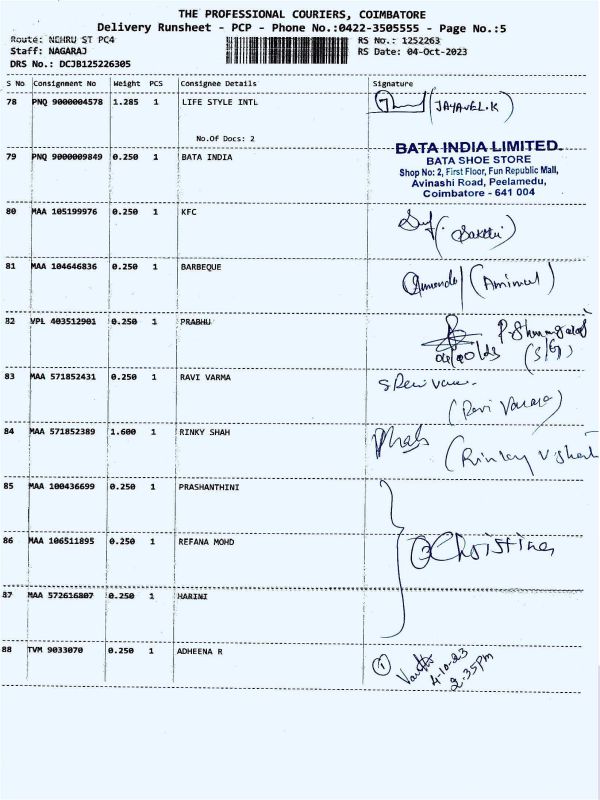 THE PROFESSIONAL COURIERS, COIMBATORE
Delivery Runsheet - PCP - Phone No.:0422-3505555 - Page No.:5
Route: NEHRU ST PC4 RS No.: 1252263
Staff: NAGARAJ RS Date: 04-Oct-2023
DRS No.: DCJB125226305
S No Consignment No Weight PCS Consignee Details Signature
78 PNQ 9000004578 1.285 1 LIFE STYLE INTL (JAYAVEL.K)
No.Of Docs: 2
BATA INDIA LIMITED.
79 PNQ 9000009849 0.250 1 BATA INDIA BATA SHOE STORE
Shop No: 2, First Floor, Fun Republic Mall,
Avinashi Road, Peelamedu,
Coimbatore - 641 004
80 MAA 105199976 0.250 1 KFC (Sakthi)
81 MAA 104646836 0.250 1 BARBEQUE
82 VPL 403512901 0.250 1 PRABHU
83 MAA 571852431 0.250 1 RAVI VARMA
(Ravi Varma)
84 MAA 571852389 1.600 1 RINKY SHAH
(Rinky
85 MAA 100436699 0.250 1 PRASHANTHINI
86 MAA 106511895 0.250 1 REFANA MOHD Christina
87 MAA 572616807 0.250 1 HARINI
88 TVM 9033070 0.250 1 ADHEENA R 1
4-10-23
2.35pm